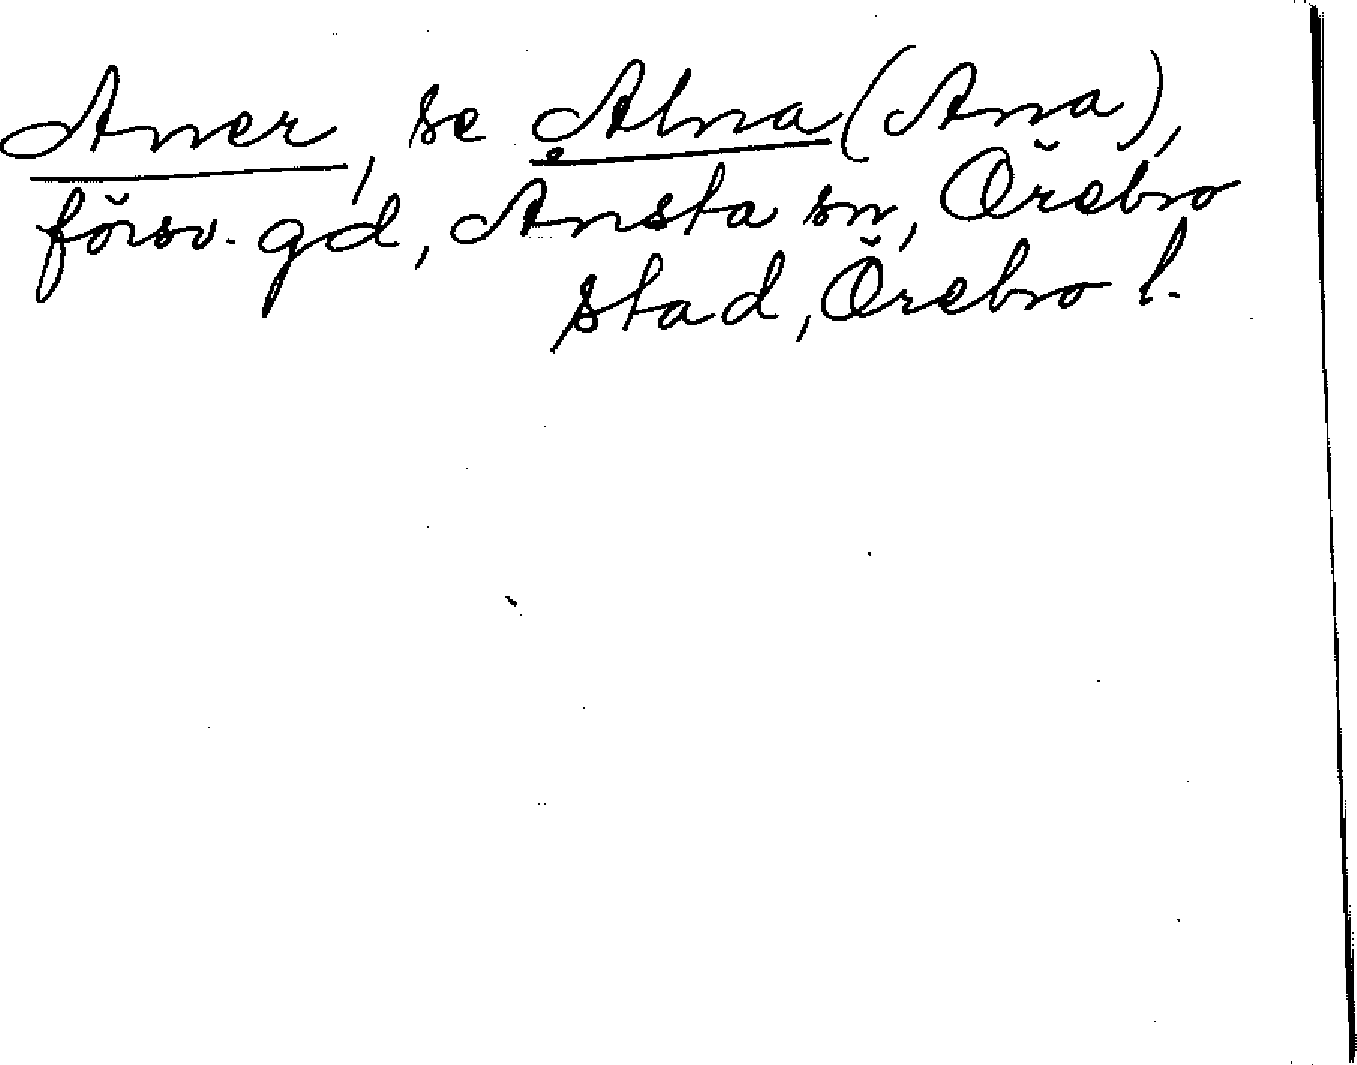 Aner, se Alna (Ana),
försv. gd, Ansta sn, Örebro
stad, Örebro l.